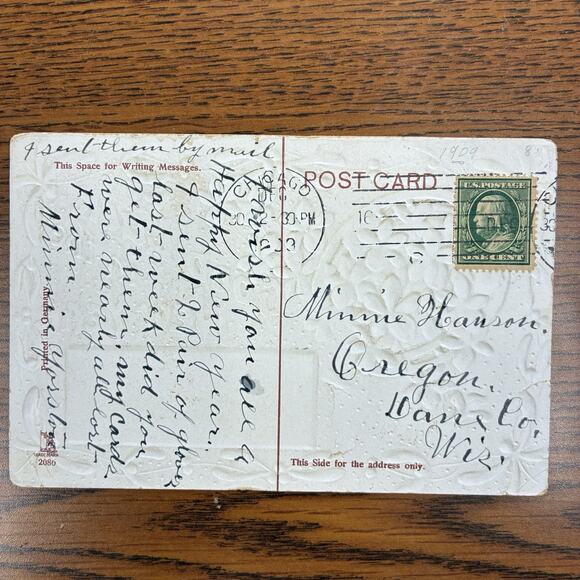 I sent them by mail
This Space for Writing Messages.
I wish you all a
Happy New Year.
I sent 2 Pair of gloves
last week did you
get them. my Cards
were nearly all lost
From
Minnie
Printed in Germany
TRADE MARK
2086
POST CARD
1909
CHICAGO
DEC
30 12-30 PM
U.S. POSTAGE
ONE CENT
Minnie Hanson.
Oregon.
Dane Co.
Wis.
This Side for the address only.